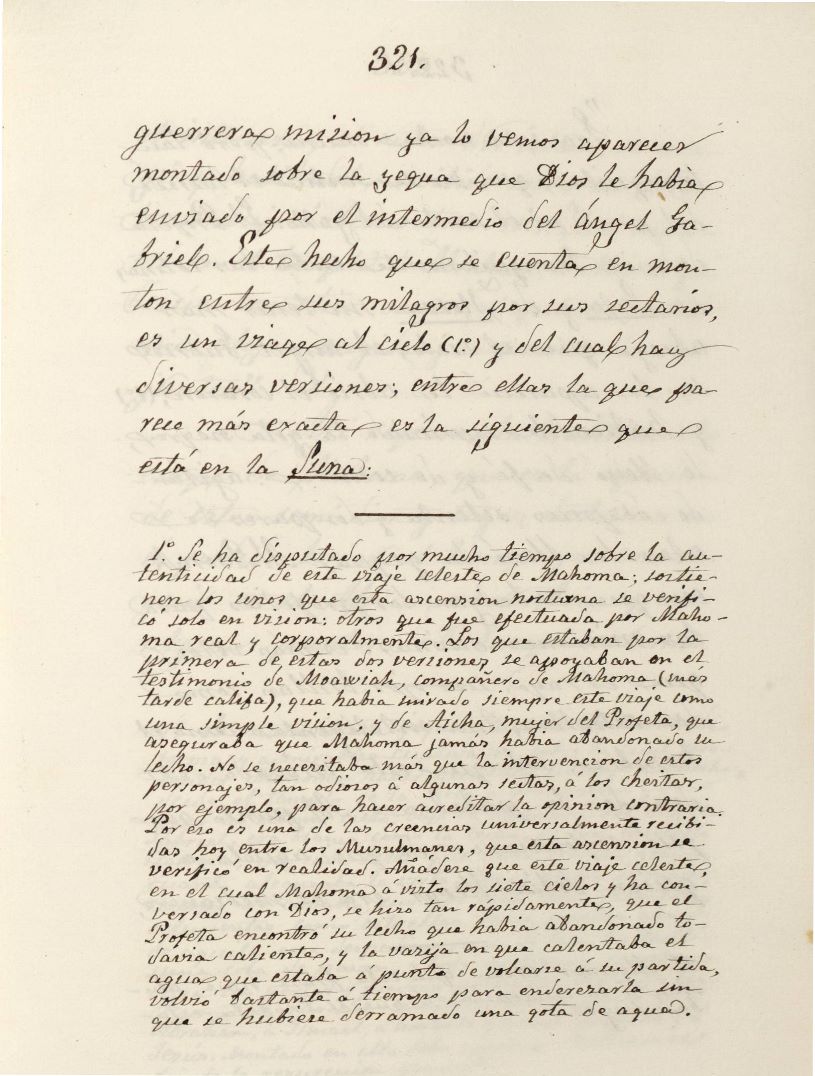 321.
guerrera mision ya lo vemos aparecer
montado sobre la yegua que Dios le habia
enviado por el intermedio del ángel Ga-
briel. Este hecho que se cuenta en mon-
ton entre sus milagros por sus sectarios,
es un viage al cielo (1º) y del cual hay
diversas versiones; entre ellas la que pa-
rece más exacta es la siguiente que
está en la Suna:
1º. Se ha disputado por mucho tiempo sobre la au-
tenticidad de este viaje celeste de Mahoma; sostie-
nen los unos que esta ascension nocturna se verifi-
có solo en vision: otros que fue efectuada por Maho-
ma real y corporalmente. Los que estaban por la
primera de estas dos versiones se apoyaban en el
testimonio de Moawiah, compañero de Mahoma (más
tarde califa), que habia mirado siempre este viaje como
una simple vision, y de Aicha, mujer del Profeta, que
aseguraba que Mahoma jamás habia abandonado su
lecho. No se necesitaba más que la intervencion de estos
personajes, tan odiosos á algunas sectas, á los cheitas,
por ejemplo, para hacer acreditar la opinion contraria.
Por eso es una de las creencias universalmente recibi-
das hoy entre los Musulmanes, que esta ascension se
verificó en realidad. Añádese que este viaje celeste,
en el cual Mahoma á visto los siete cielos y ha con-
versado con Dios, se hizo tan rápidamente, que el
Profeta encontró su lecho que habia abandonado to-
davia caliente, y la vasija en que calentaba el
agua que estaba á punto de volcarse á su partida,
volvió bastante á tiempo para enderezarla sin
que se hubiese derramado una gota de agua.